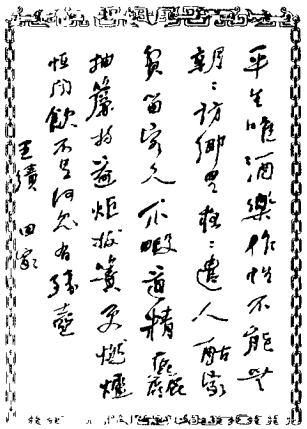 平生唯酒樂作性不能無
朝ミ訪鄉里夜ミ遣人酤家
貧留客久不暇道精麤
抽簾持益炬拔簀更燃爐
恒聞飲不足何見有殘壺
王績 田家